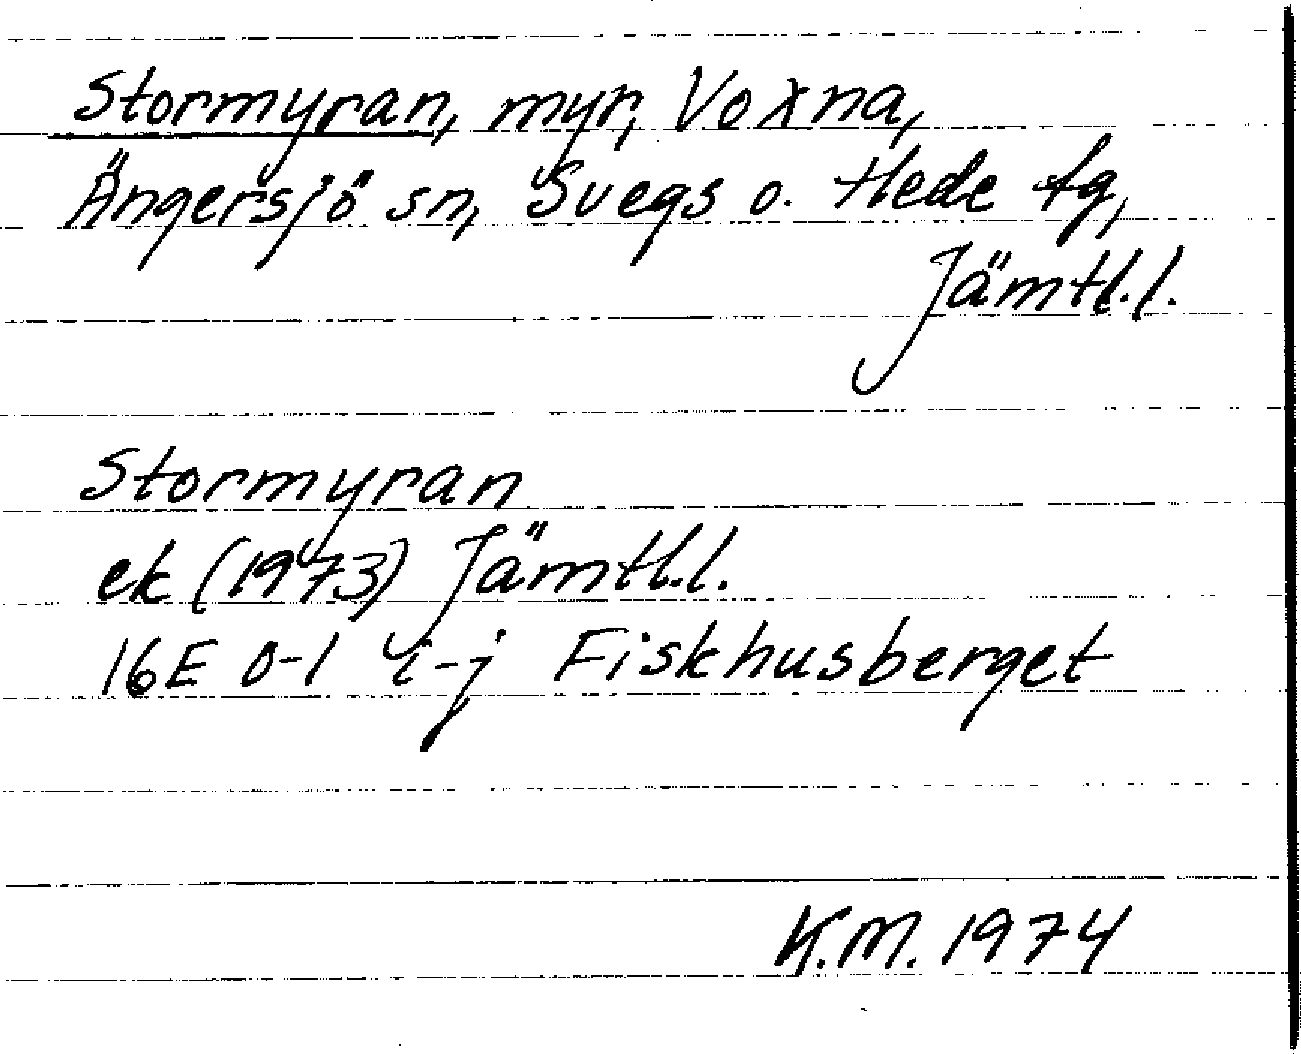 Stormyran, myr, Voxna,
Ängersjö sn, Svegs o. Hede tg,
Jämtl.l.
Stormyran
ek (1973) Jämtl.l.
16E 0-1 i-j Fiskhusberget
K.M. 1974